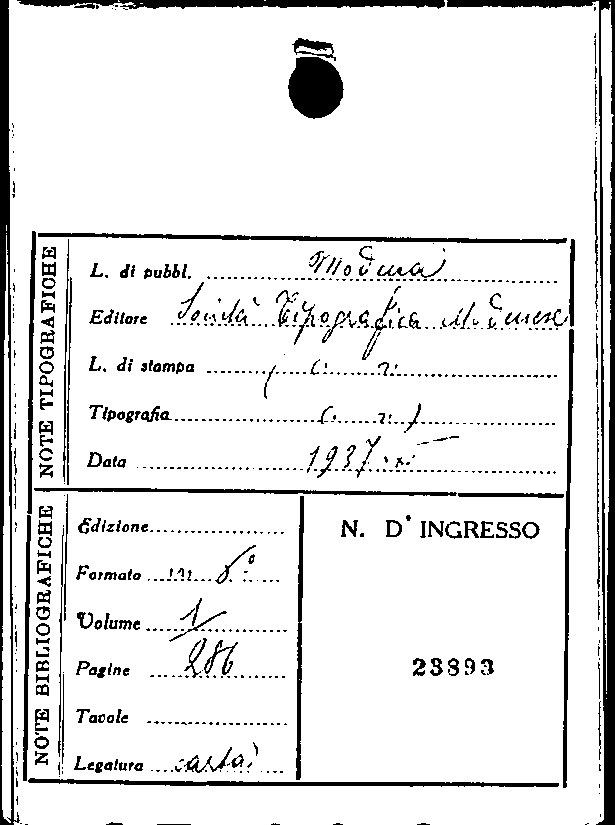 NOTE TIPOGRAFICHE
L. di pubbl. Modena
Editore Società Tipografica Modenese
L. di stampa (i. n.
Tipografia (i. n.)
Data 1937
NOTE BIBLIOGRAFICHE
Edizione
Formato in 8°
Volume 1
Pagine 286
Tavole
Legatura carta
N. D'INGRESSO
23893